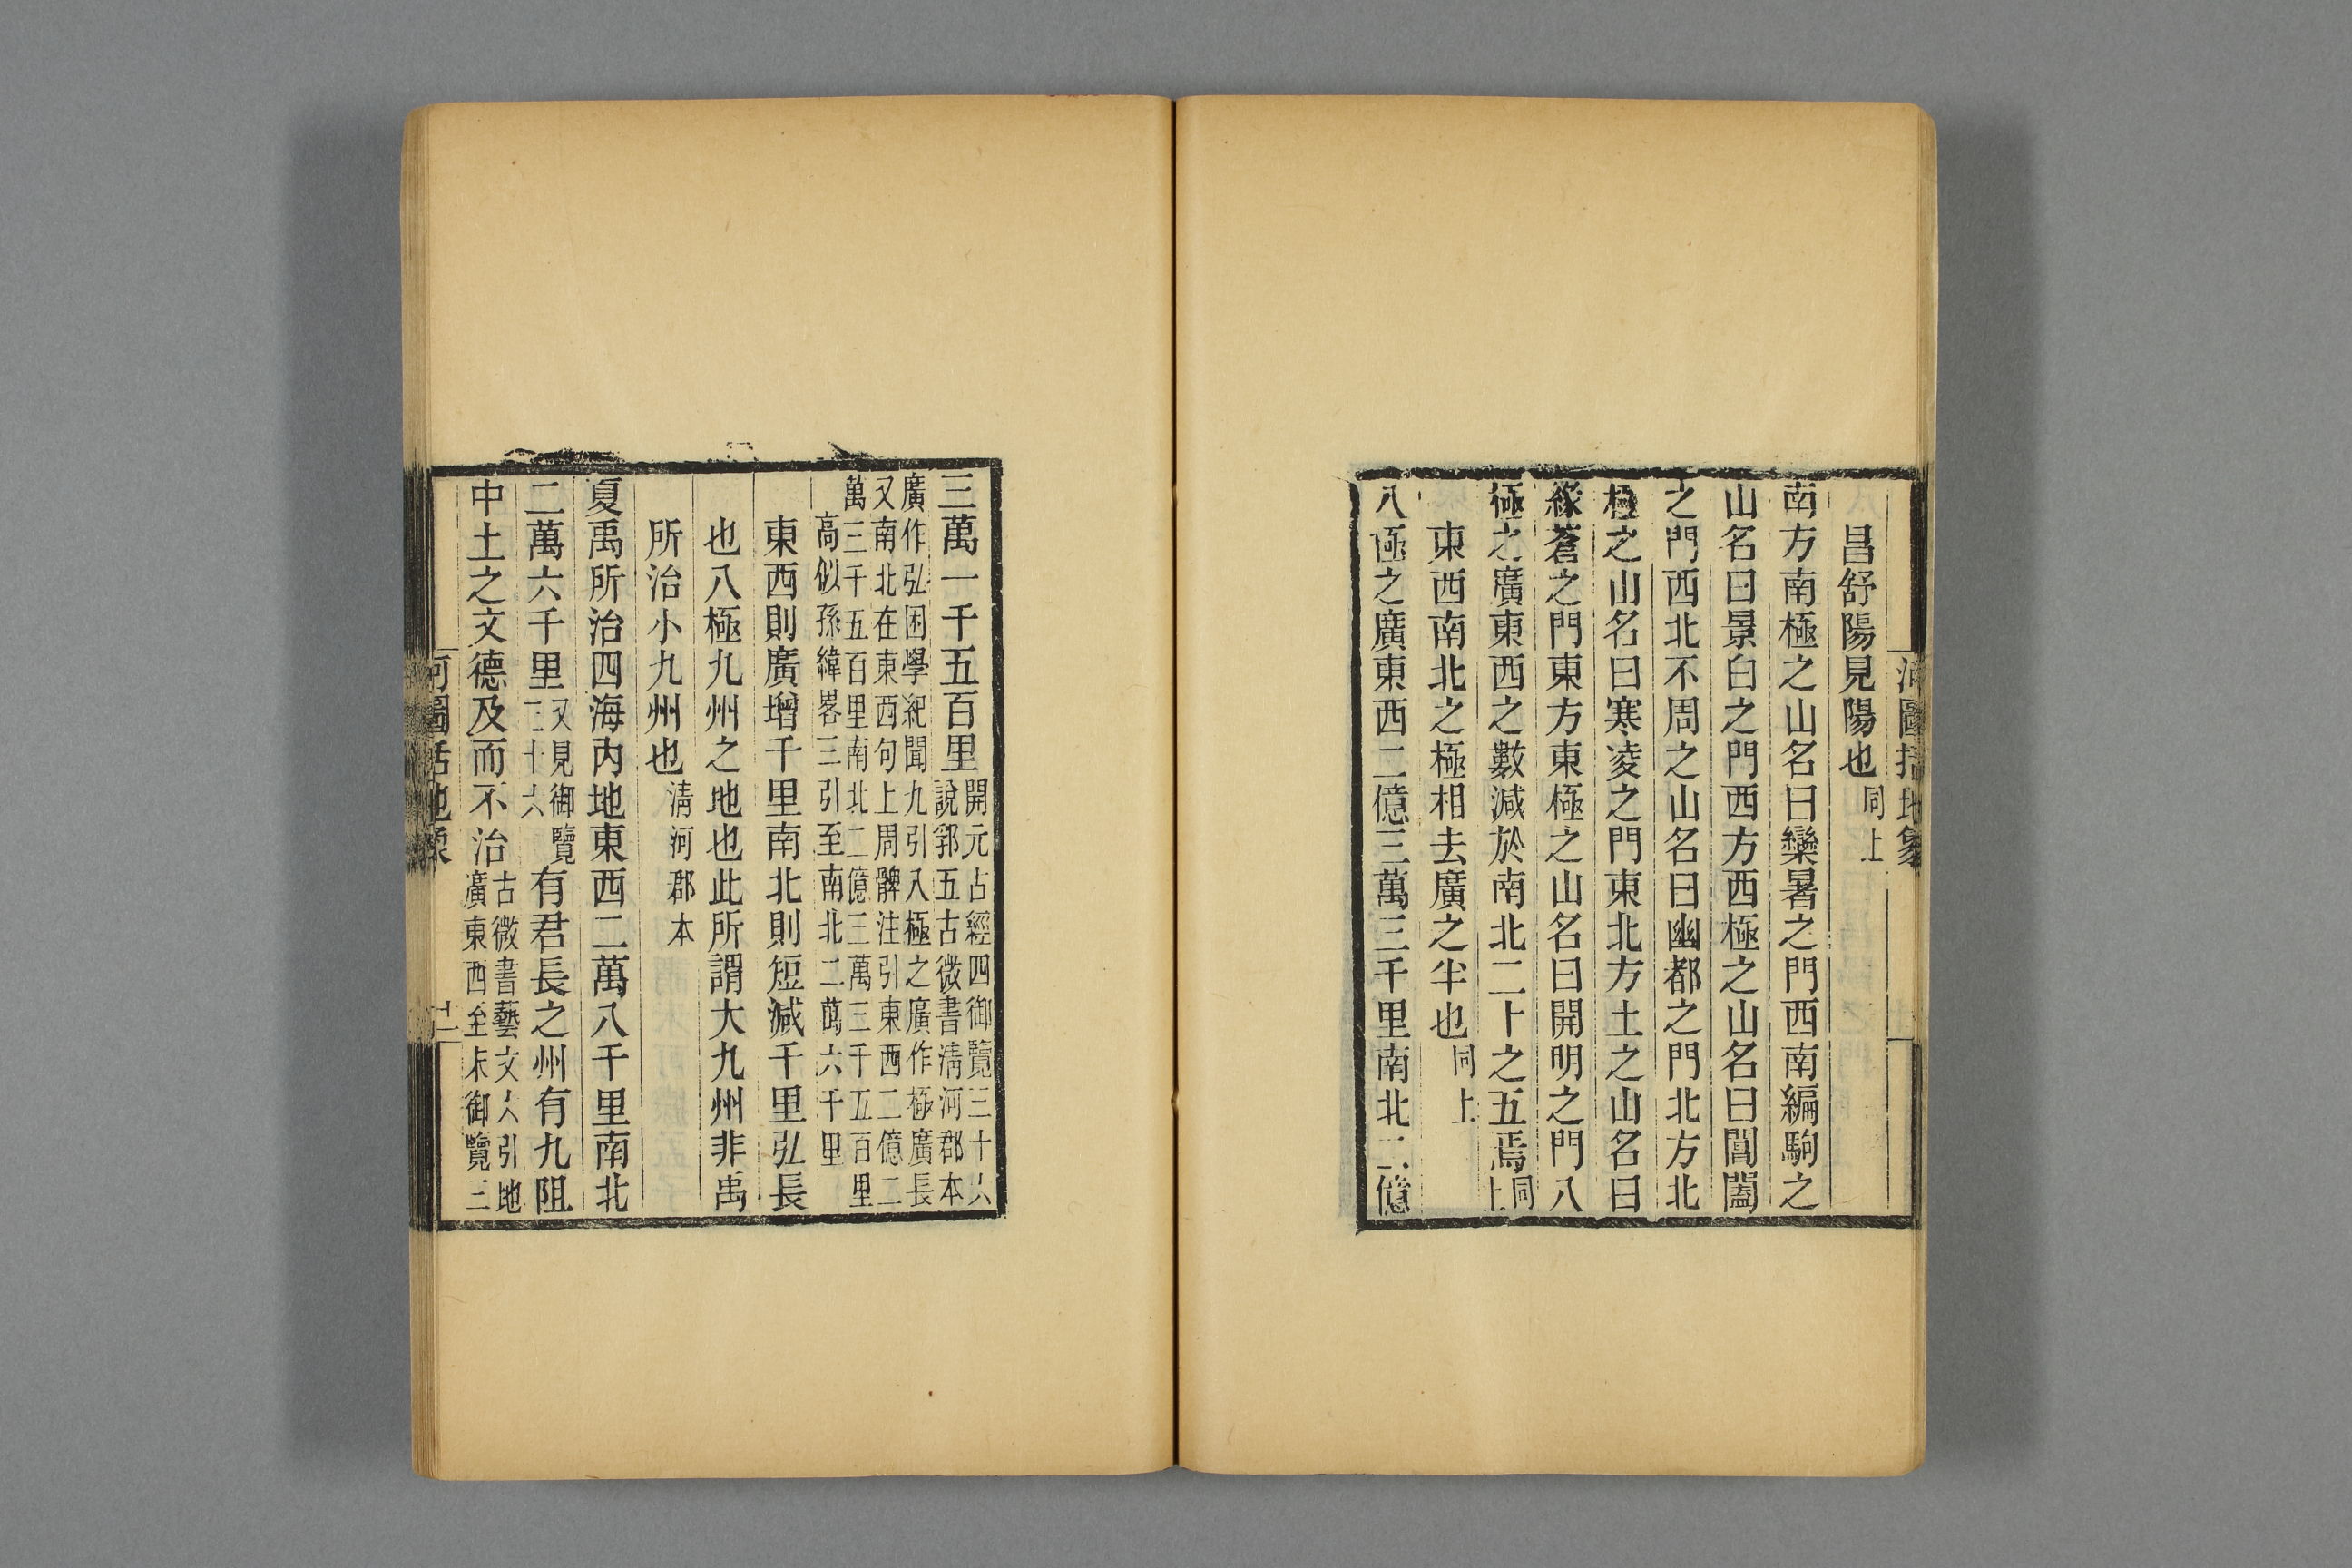 河圖括地象
昌舒陽見陽也同上
南方南極之山名曰欒暑之門西南編駒之
山名曰景白之門西方西極之山名曰閶闔
之門西北不周之山名曰幽都之門北方北
極之山名曰寒凌之門東北方土之山名曰
緣蒼之門東方東極之山名曰開明之門八
極之廣東西之數減於南北二十之五焉同上
東西南北之極相去廣之半也同上
八極之廣東西二億三萬三千里南北二億
三萬一千五百里開元占經四御覽三十六
說郛五古微書淸河郡本
廣作弘困學紀聞九引八極之廣作極廣長
又南北在東西句上周髀注引東西二億二
萬三千五百里南北二億三萬三千五百里
高似孫緯畧三引至南北二萬六千里
東西則廣增千里南北則短減千里弘長
也八極九州之地也此所謂大九州非禹
所治小九州也淸河郡本
夏禹所治四海內地東西二萬八千里南北
二萬六千里又見御覽三十六有君長之州有九阻
中土之文德及而不治古微書藝文八引地
廣東西至末御覽三
河圖括地象
十一